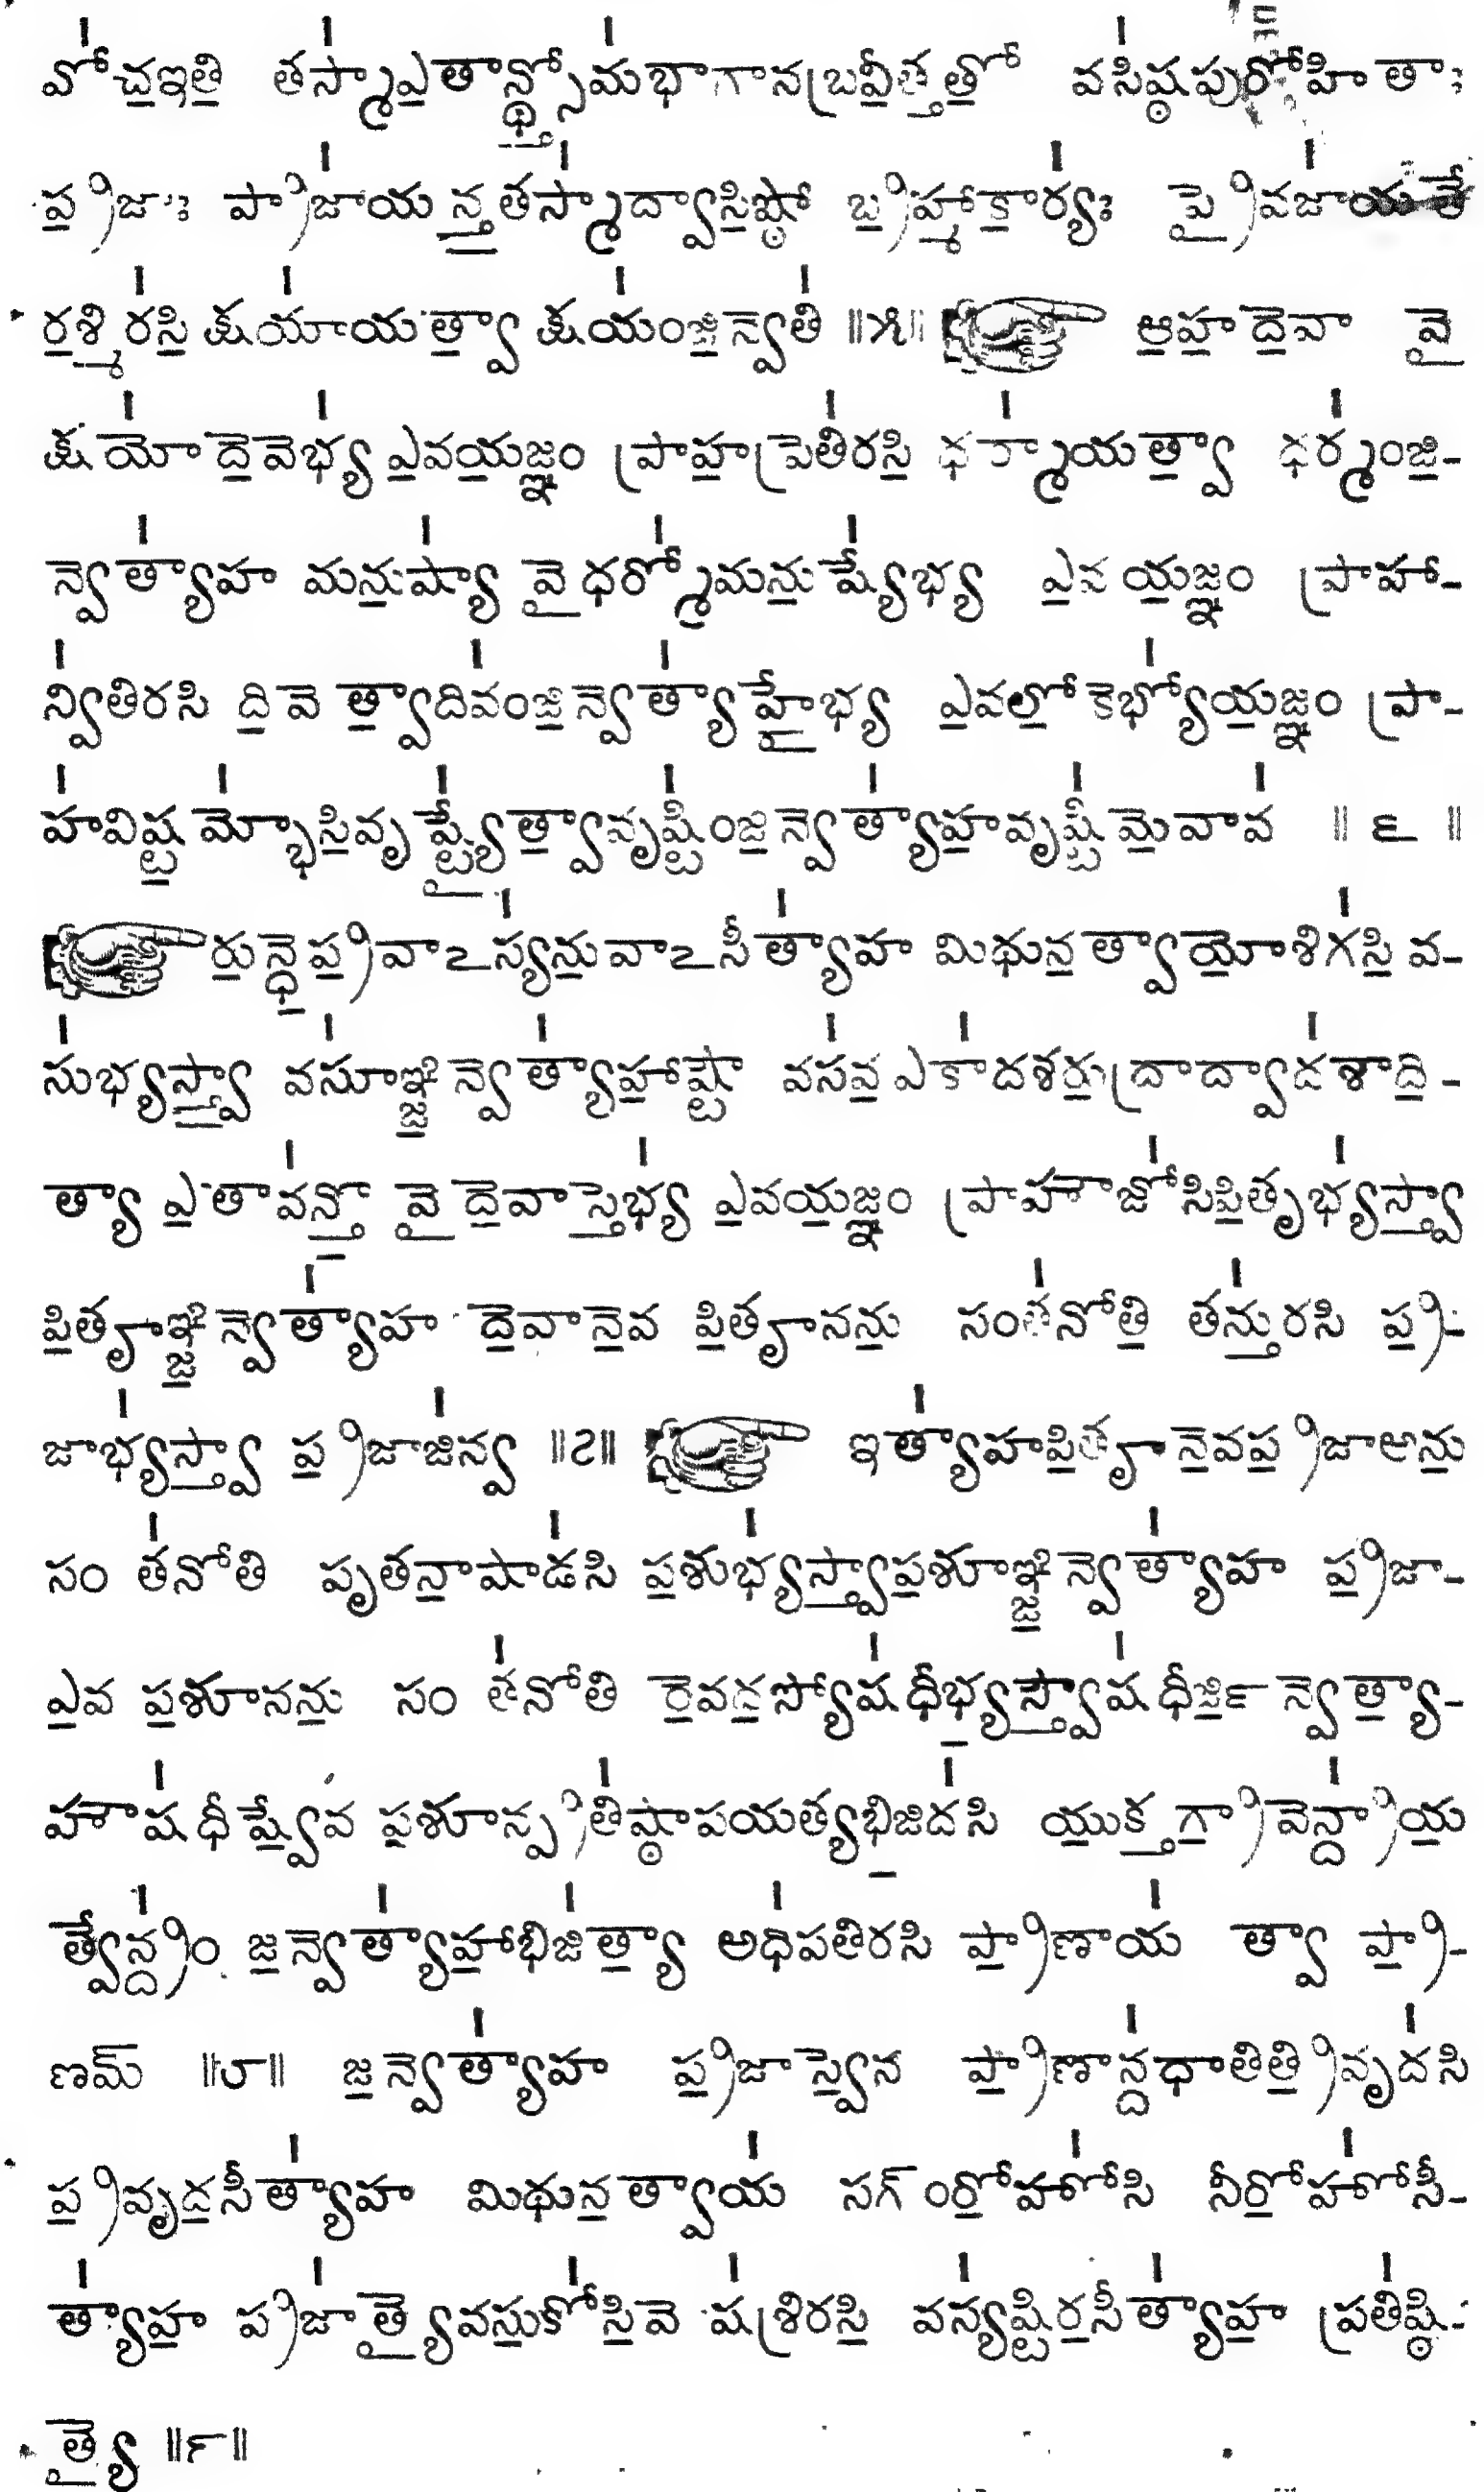 వో॑చ॒ఇతి॒ తస్మా॑ఎ॒తాన్థ్స్తో॒మ॑భాగానబ్రవీ॒త్తతో॒ వసి॑ష్ఠపురో॑హితాః
ప్ర॒జాః ప్రాజా॑యన్త॒తస్మా॑ద్వాసి॒ష్ఠో బ్ర॒హ్మాకా॒ర్యః॑ ప్రై॒వజా॑యతే
ర॒శ్మిర॑సి॒ క్షయా॑యత్వా॒ క్షయం॑జి॒న్వేతి॑ ॥౫॥ ఆ॒హ॒ దే॒వా వై
క్షయో॑ దే॒వేభ్య॑ ఎ॒వయ॒జ్ఞం ప్రాహ॒ప్రేతి॑రసి॒ ధర్మా॑యత్వా॒ ధర్మం॑జి॒-
న్వేత్యా॑హ మను॒ష్యా॑ వై॒ధర్మో॑మను॒ష్యే॑భ్య ఎ॒వ య॒జ్ఞం ప్రాహా-
న్వి॑తిరసి ది॒వె త్వా॒దివం॑జి॒న్వేత్యా॑ హై॒భ్య ఎ॒వలో॒కెభ్యో॑య॒జ్ఞం ప్రా-
హ॑విష్ట॒మ్భో॑సి॒వృష్ట్యై॑త్వా॒వృష్టిం॑జి॒న్వేత్యా॑హ॒వృష్టి॑మె॒వావ॑ ॥ ౬ ॥
రు॒న్ధె॒ప్ర॒వాఽస్య॑ను॒వాఽసీత్యా॑హ మిథున॒త్వాయో॒శిగ॑సి॒ వ-
సు॑భ్యస్త్వా॒ వసూ॑ఞ్జి॒న్వేత్యా॑హా॒ష్టౌ వస॑వ॒ ఎకా॑దశరు॒ద్రాద్వాదశా॑ది॒-
త్యా ఎ॒తావ॑న్తో॒ వై॒ దే॒వాస్తెభ్య॑ ఎ॒వయ॒జ్ఞం ప్రాహౌజో॑సిపి॒తృభ్య॑స్త్వా॒
పి॒తౄఞ్జి॒న్వేత్యా॑హ దే॒వానె॒వ పి॒తౄనను॒ సంత॑నోతి॒ తన్తు॒॑రసి ప్ర॒-
జాభ్య॑స్త్వా॒ ప్ర॒జాజి॑న్వ ॥౭॥ ఇత్యా॑హపి॒తౄనె॒వప్ర॒జాఅను॒
సం త॑నోతి పృతనా॒షాడ॑సి ప॒శుభ్య॑స్త్వా॒ప॒శూఞ్జి॒న్వేత్యా॑హ ప్ర॒జా-
ఎ॒వ ప॒శూనను॒ సం త॑నోతి రె॒వద॒స్యోష॑ధీభ్య॒స్త్వౌష॑ధీర్జి॒న్వేత్యా॒-
హౌష॑ధీష్వే॒వ ప॒శూన్ప్రతి॑ష్ఠాపయత్యభి॒జిద॑సి యు॒క్తగ్రా॒వెన్ద్రా॑య॒
త్వేన్ద్రం॑ జి॒న్వేత్యా॑హా॒భిజి॑త్యా॒ అధి॑పతిరసి ప్రా॒ణాయ॑ త్వా ప్రా॒-
ణమ్ ॥౮॥ జి॒న్వేత్యా॑హ ప్ర॒జాస్వే॒వ ప్రా॒ణాన్ద॑ధాతిత్రి॒వృద॑సి
ప్ర॒వృద॒సీత్యా॑హ మిథున॒త్వాయ॑ సగ్ంరో॒హో॑సి నీరో॒హో॑సీ-
త్యా॑హ॒ ప్రజా॑త్యై॒వసు॒కో॑సి॒వె ష॑శ్రిరసి॒ వస్య॑ష్టిర॒సీత్యా॑హ॒ ప్రతి॑ష్ఠి-
త్యై ॥౯॥